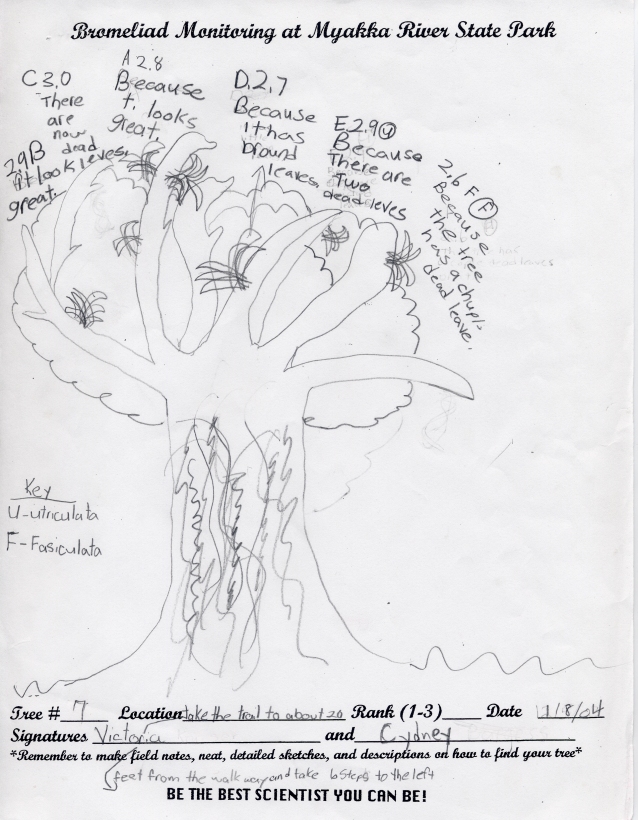 Bromeliad Monitoring at Myakka River State Park
C 3,0
There
are
now
dead
leves,
A 2.8
Because
t, looks
great,
D.2,7
Because
it has
bround
leaves,
E.2.9 U
Because
There are
Two
dead leves
2,6 F F
Because
the tree
has a chupl-
dead leave,
2.9 B
it look
great.
Key
U-utriculata
F-Fasiculata
Tree # 7 Location take the trail to about 20 Rank (1-3)____ Date 11/8/04
Signatures Victoria and Cydney
*Remember to make field notes, neat, detailed sketches, and descriptions on how to find your tree*
feet from the walk way and take 6 steps to the left
BE THE BEST SCIENTIST YOU CAN BE!